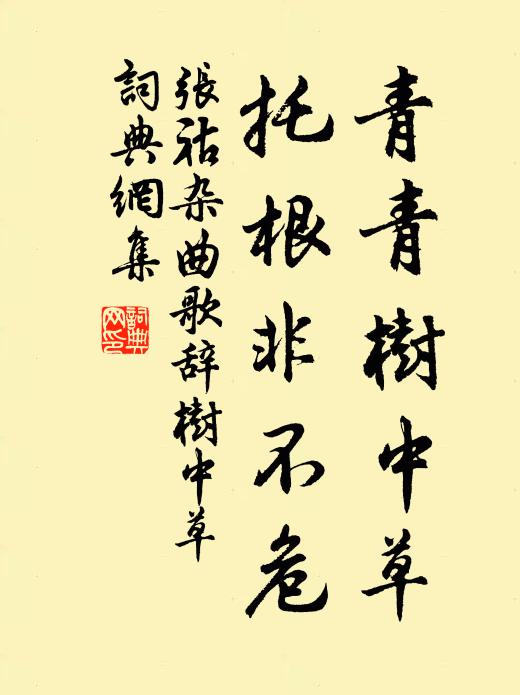 青青樹中草
托根非不危
張祜杂曲歌辞樹中草
詞典網集
詞典
网印